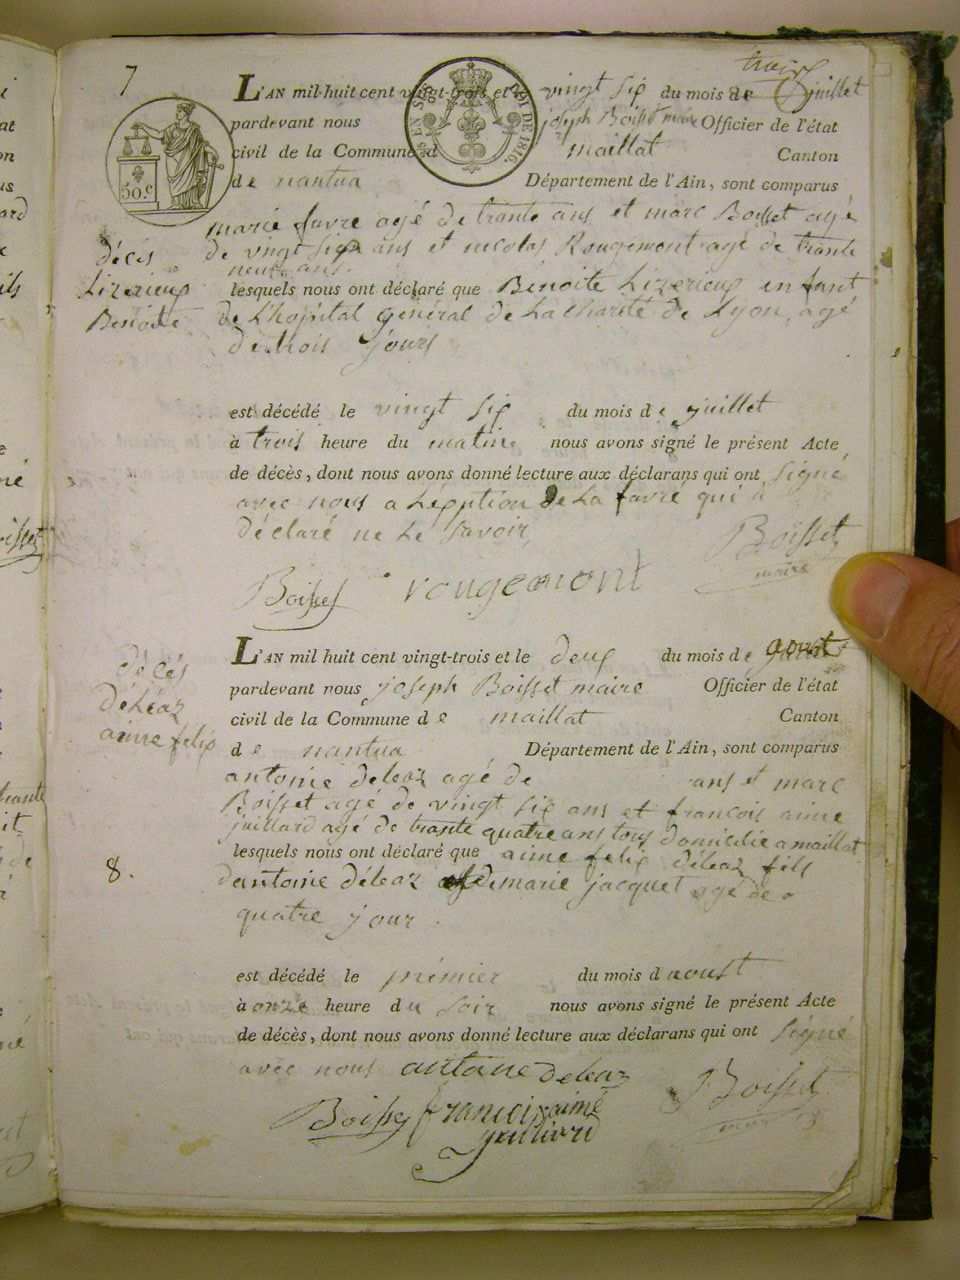 7
trois
L'AN mil huit cent vingt-trois et le vingt six du mois de juillet
pardevant nous joseph Boisset maire Officier de l'état
civil de la Commune d maillat Canton
de nantua Département de l'Ain, sont comparus
EN SUS LOI DE 1816.
50.c
marie favre agé de trante ans et marc Boisset agé
de vingt six ans et nicolas Rougemont agé de trante
neuf ans.
décès
Lizerieux
Benoite
lesquels nous ont déclaré que Benoite Lizerieux enfant
de L'hopital général de La charité de Lyon, agé
de trois jours
est décédé le vingt six du mois de juillet
à trois heure du matin nous avons signé le présent Acte
de décès, dont nous avons donné lecture aux déclarans qui ont signé
avec nous a Léxeption de La favre qui a
déclaré ne Le savoir
Boisset
maire
Boisset rougemont
décés
déléaz
aime felix
8.
L'AN mil huit cent vingt-trois et le deux du mois de aoust
pardevant nous joseph Boisset maire Officier de l'état
civil de la Commune de maillat Canton
de nantua Département de l'Ain, sont comparus
antoine deleaz agé de ans et marc
Boisset agé de vingt six ans et francois aime
juillard agé de trante quatre ans tous domicilie a maillat
lesquels nous ont déclaré que aime felix déleaz fils
dantoine déleaz et de marie jacquet agé de
quatre jour.
est décédé le prémier du mois d aoust
à onze heure du soir nous avons signé le présent Acte
de décès, dont nous avons donné lecture aux déclarans qui ont signé
avec nous antoine deleaz
Boisset
maire
Boisset francois aimé
juillard